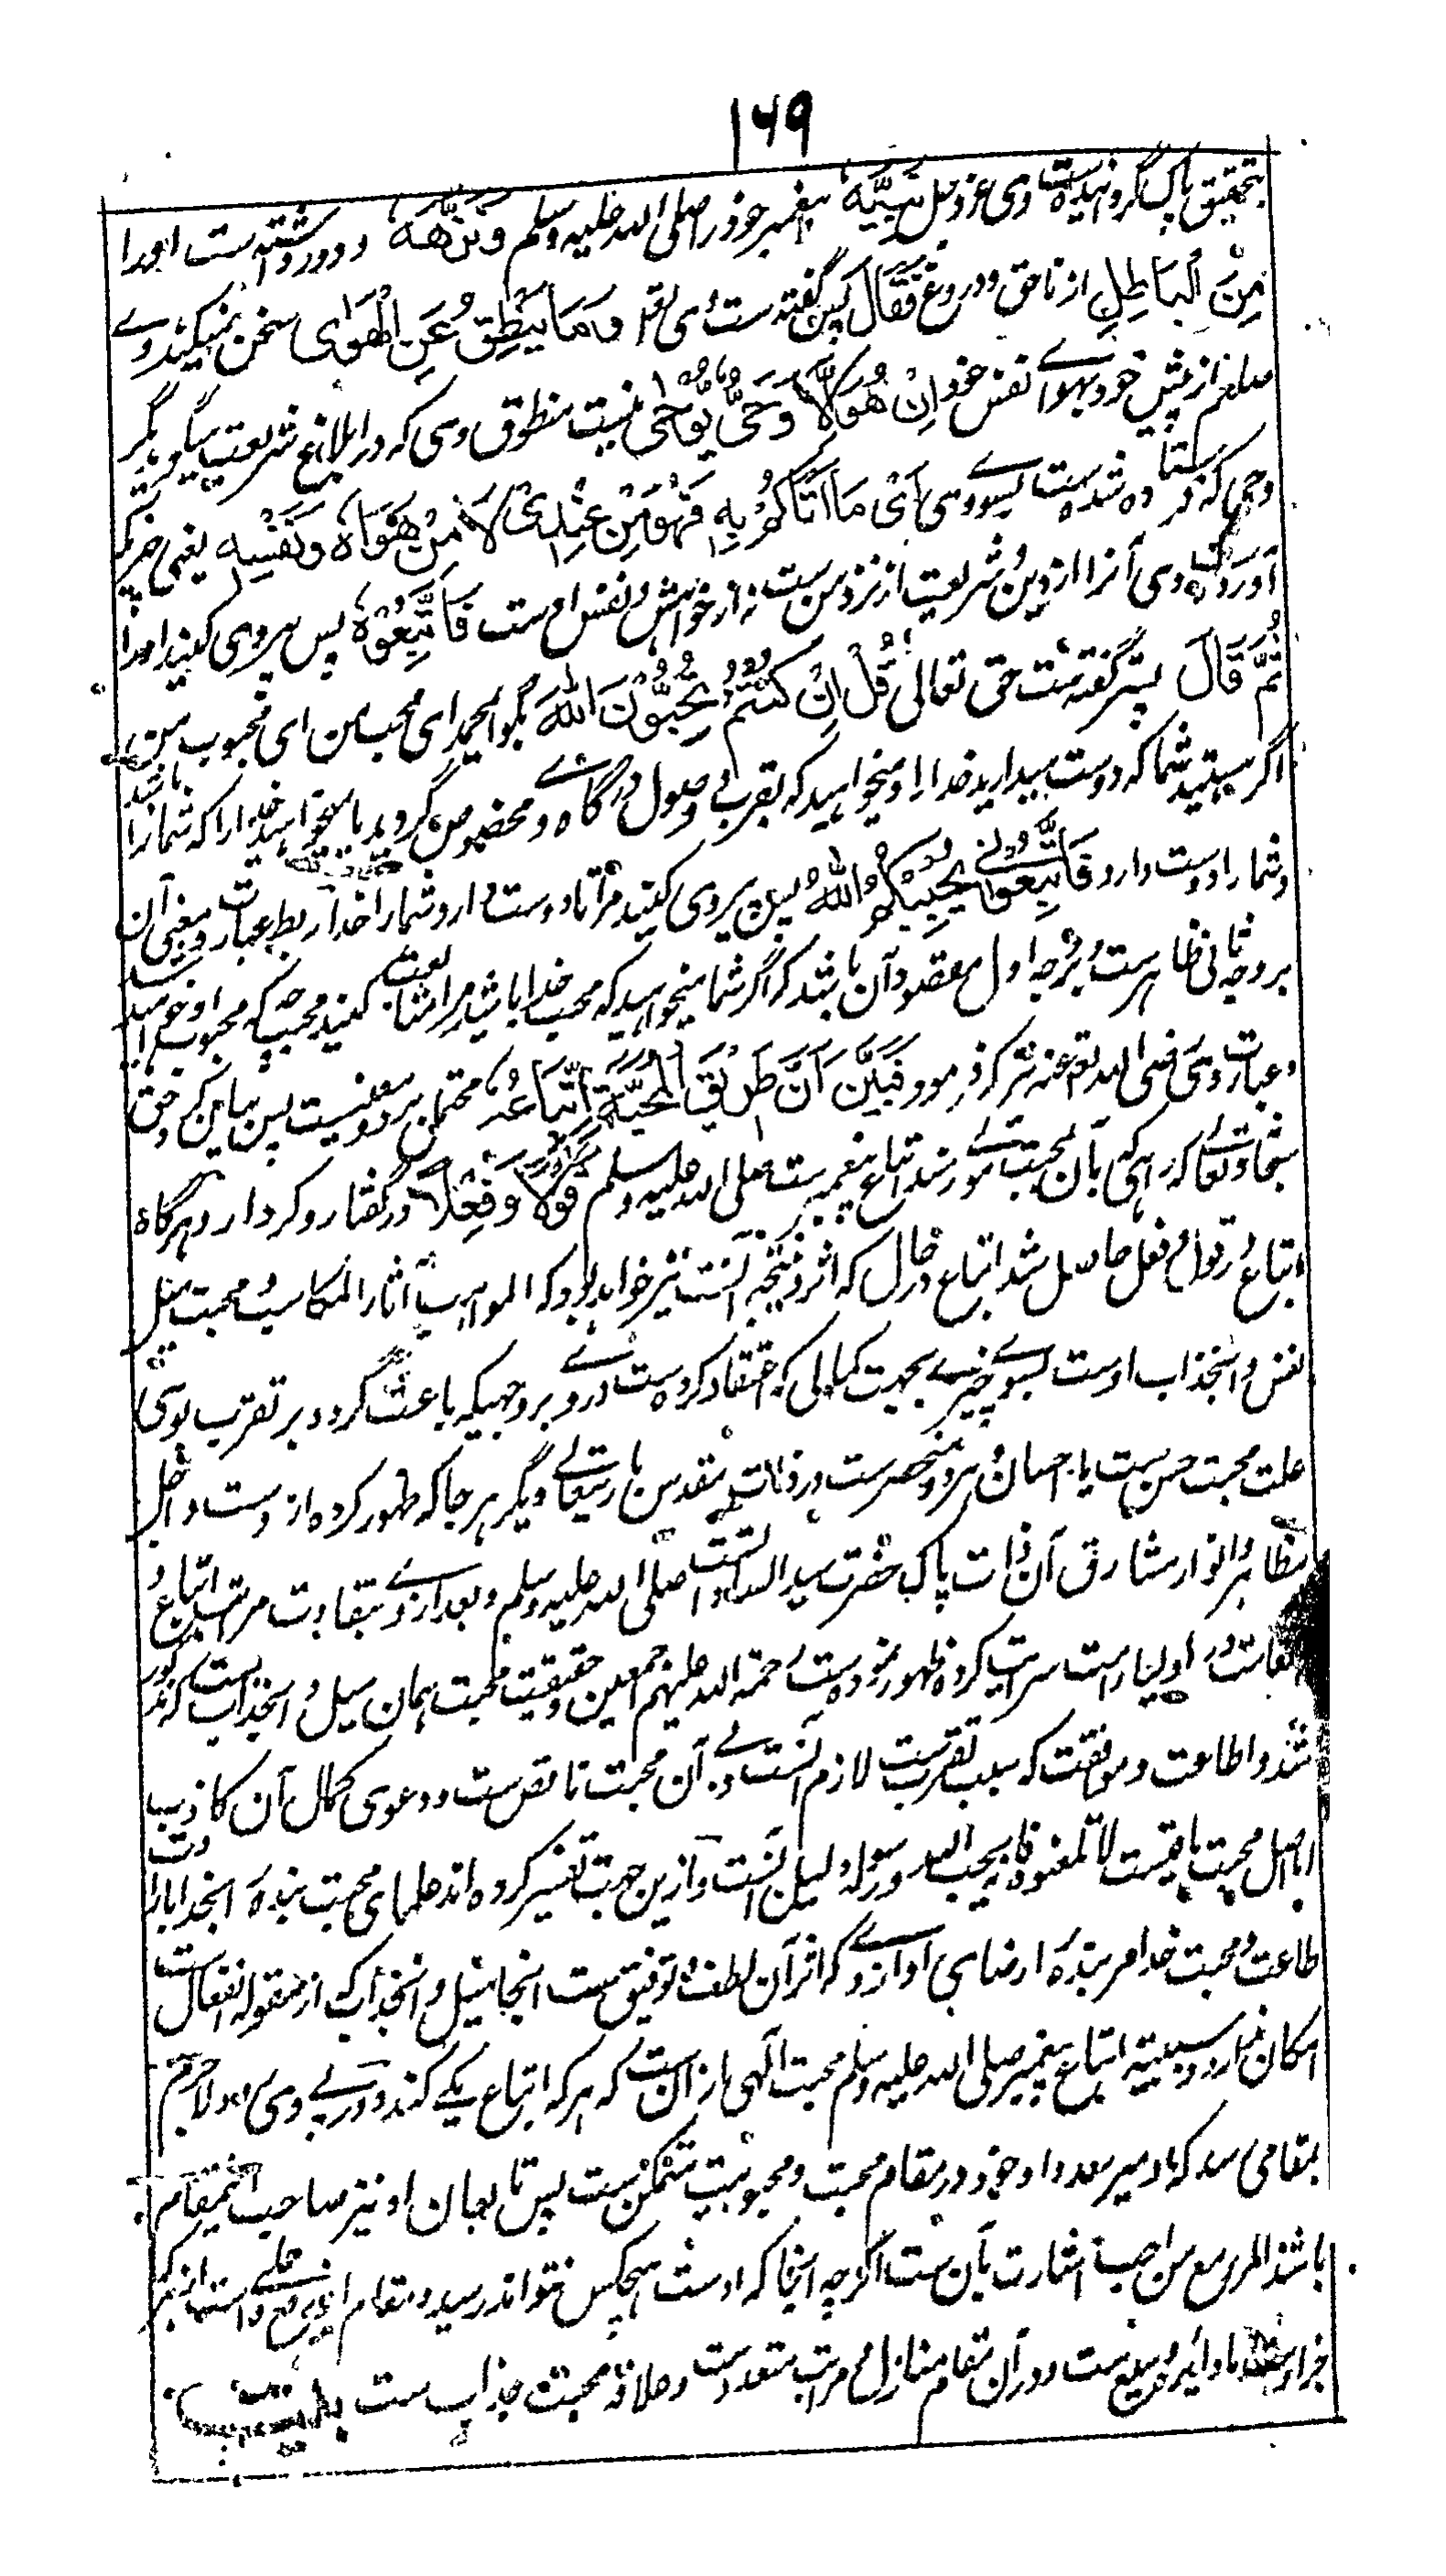 ۱۶۹
بتحقیق پاک گردانیده است وی عز و جل نَبِیَّهٗ پیغمبر خود را صلی الله علیه وسلم وَنَزَّهَهٗ و دور داشته است او را
مِنَ الْبَاطِلِ از ناحق و دروغ فَقَالَ پس گفته است وی تعه وَمَا یَنْطِقُ عَنِ الْهَوٰی سخن نمیکند وے
صلعم از پیش خود بهوائے نفس خود اِنْ هُوَ اِلَّا وَحْیٌ یُّوْحٰی نیست منطوق وی که در ابلاغ شریعت میگوید مگر
وحی که فرستاده شده است بسوے وی اَیْ مَا اَتَاکُمْ بِهٖ فَهُوَ مِنْ عِنْدِیْ لَا مِنْ هَوَاهُ وَنَفْسِهٖ یعنی چیزیکه
آورده است وی آنرا از دین و شریعت از نزد من ست نه از خواهش و نفس اوست فَاتَّبِعُوْهُ پس پیروی کنید او را
ثُمَّ قَالَ پستر گفته است حق تعالی قُلْ اِنْ کُنْتُمْ تُحِبُّوْنَ اللّٰهَ بگو ای محمد ای محب من ای محبوب من
اگر هستید شما که دوست میدارید خدا را و میخواهید که بقرب و وصول درگاه وے مخصوص گردید یا میخواهید خدا را که شما را
و شما را دوست دارد فَاتَّبِعُوْنِیْ یُحْبِبْکُمُ اللّٰهُ پس پیروی کنید مرا تا دوست دارد شما را خدا ربط عبارت و معنی آن
بر وجه ثانی ظاهرست و بر وجه اول مقصود آن باشد که اگر شما میخواهید که محب خدا باشید مرا متابعت کنید محبے که محبوب او خواهید شد
و عبارت وی رضی الله تعه عنه که فرمود فَبَیَّنَ اَنَّ طَرِیْقَ الْمَحَبَّةِ اِتِّبَاعُهٗ محتمل هر دو معنیست پس بیان کرد حق
سبحانه و تعالے که راهی که بآن بمحبت وے رسند اتباع پیغمبرست صلی الله علیه وسلم قَوْلًا وَفِعْلًا در گفتار و کردار و هرگاه
اتباع در قول و فعل حاصل شد اتباع در حال که اثر و نتیجه آنست نیز خواهد بود که المواهب آثار المکاسب و محبت میل
نفس و انجذاب اوست بسوے چیزے بجهت کمالی که اعتقاد کرده ست در وے بر وجهیکه باعث گردد بر تقرب بوی
علت محبت حسن ست یا احسان و هر دو منحصرست در ذات مقدس باریتعالے و دیگر هر جا که ظهور کرده از وست و اجل
مظاهر و انوار مشارق آن ذات پاک حضرت سید السادات است صلی الله علیه وسلم و بعد از وے بتفاوت مراتب اتباع در
اولیا است سرایت کرده ظهور نموده ست رحمة الله علیهم اجمعین و حقیقت محبت همان میل و انجذاب است که مذکور
شد و اطاعت و موافقت که سبب تقرب ست لازم آنست و بے آن محبت ناقص ست و دعوی کمال آن کاذب
اما اصل محبت باقیست لا تلعنوه فانه یحب الله و رسوله دلیل آنست و ازین جهت تفسیر کرده اند علمای محبت بنده خدا را با
طاعت و محبت خدا مر بنده را رضای او از وے که اثر آن لطف و توفیق ست اینجا میل و انجذاب که از مقوله انفعال ست
امکان ندارد و سببیت اتباع پیغمبر صلی الله علیه وسلم محبت الٰهی را از آن ست که هر که اتباع یکے کند و در پے وی رود لاجرم
بمقامی رسد که او میرسد و او خود در مقام محبت و محبوبیت متمکن ست پس تابعان او نیز صاحب این مقام
باشند المرء مع من احب اشارت بآن ست اگرچه اینجا که اوست هیچکس نتواند رسید و مقام
وسیع ست و در آن مقام منازل و مراتب متعددست و علاقه محبت جذاب ست بیت